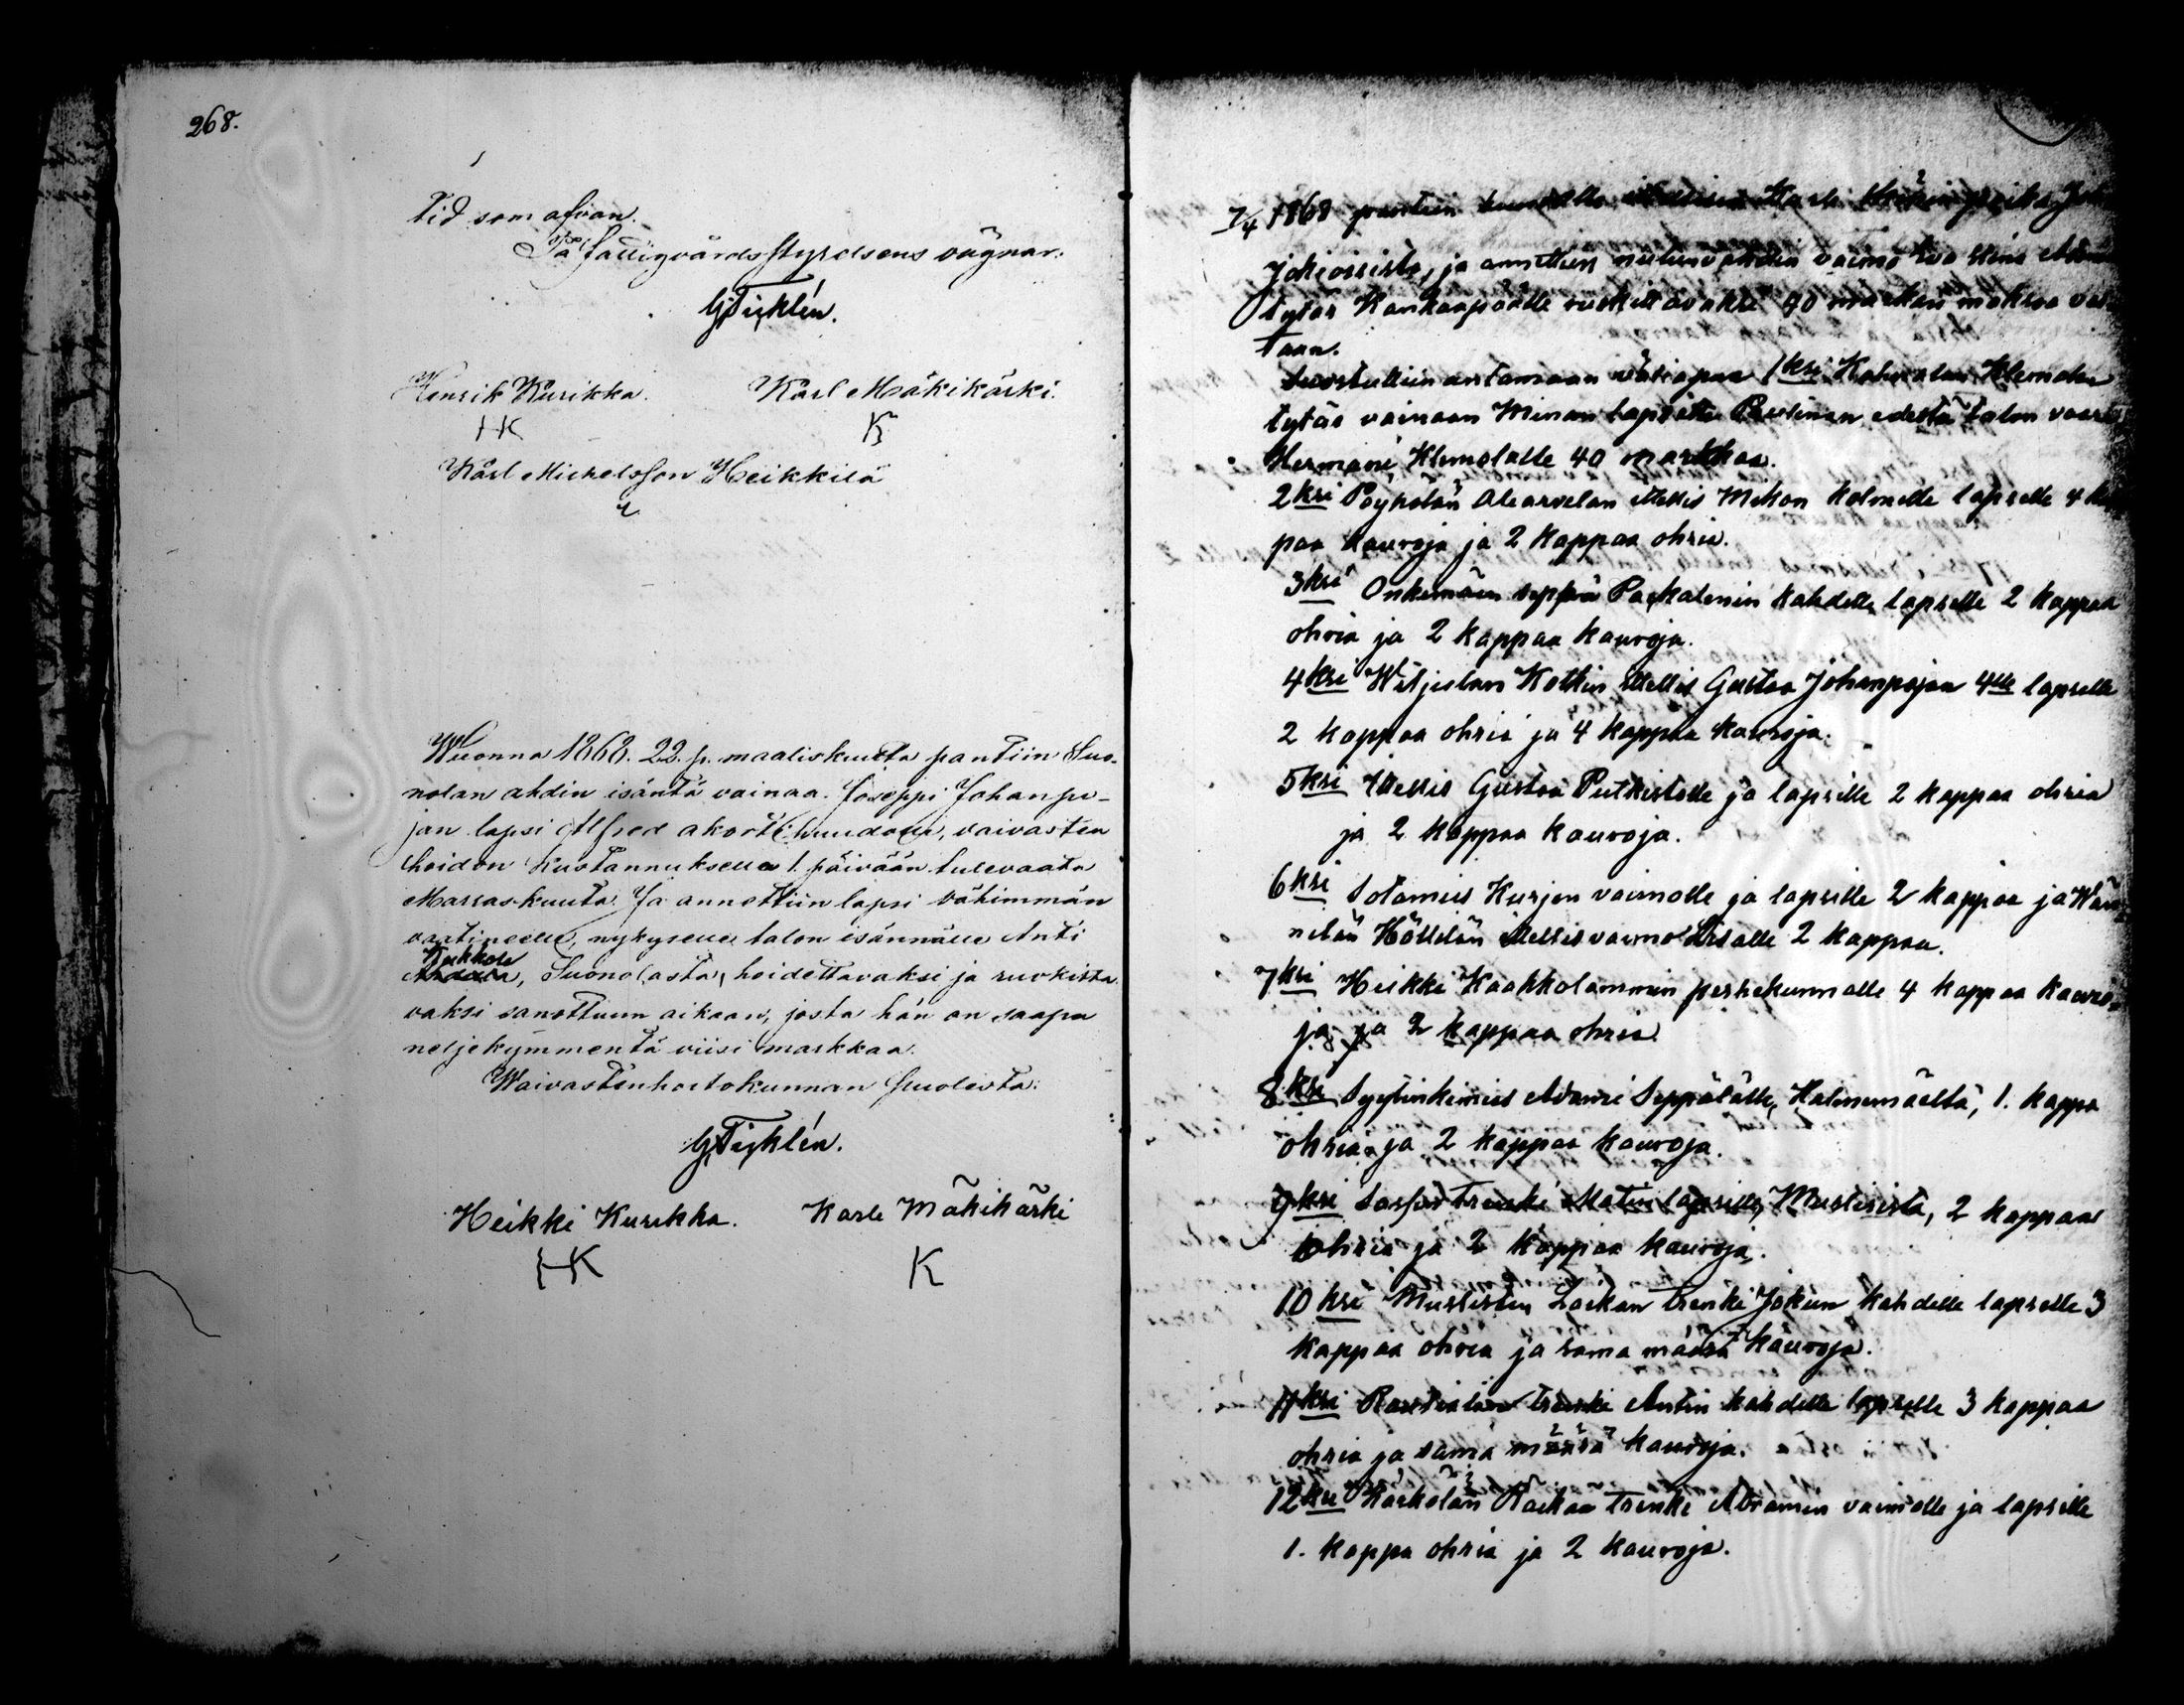 268.
Tid som ofvan.
På Fattigvårds styrelsens vägnar.
G Ticklén.
Henrik Kurikka. Karl Mäkikärki.
HK K
Karl Michelsson Heikkilä
Wuonna 1868. 22. p. maaliskuuta pantiin Suo-
nolan ahdin isäntä vainaa. Joseppi Johanpo-
jan lapsi Alfred akorti huudolla, vaivasten
hoidon kustannuksella 1. päivään tulevaata
Marraskuuta. Ja annettiin lapsi vähimmän
vaatineelle, nykyselle talon isännälle Anti
Tukkola
, Suonolasta, hoidettavaksi ja ruokitta
vaksi sanottuun aikaan, josta hän on saapa
neljekymmentä viisi markkaa.
Waivastenhoitokunnan puolesta:
G Ticklén.
Heikki Kurikka. Karle Mäkikärki
HK K
7/4 1868 pantiin Karli poika
Jokioisista, ja annettiin vaimo Eva Stina
tytär Kankaapäälle ruokittavaksi 90 markan maksoa vas
taan.
Suostuttiin antamaan 1ksi Klemolan
tytär vainaan Minan lapsette Paulinan edestä talon vaari
Hermanni Klemolalle 40 markkaa.
2ksi Pöyhölän Alearvelan Itellis Mikon kolmelle lapselle 4 ka
paa kauroja ja 2 kappaa ohria.
3ksi Onkemäen seppä kahdelle lapselle 2 kappaa
ohria ja 2 kappaa kauroja.
4ksi Kotkin Itellis Gustaa Johanpojan 4lle lapselle
2 kappaa ohria ja 4 kappaa kauroja.
5ksi Itellis Gustaa Putkistolle ja lapsille 2 kappaa ohria
ja 2 kappaa kauroja.
6ksi Sotamies Kurjen vaimolle ja lapsille 2 kappaa ja Wän-
nilän Höllilän Itellisvaimo Liisalle 2 kappaa.
7ksi Heikki Kaakkolammin perhekunnalle 4 kappaa kauro-
ja ja 2 kappaa ohria
8ksi Syytinkimies Adami Seppälälle, Halinemäeltä, 1. kappa
ohria ja 2 kappaa kauroja.
9ksi trenki Matin lapsille, Mustisista, 2 kappaa
ohria ja 2 kappaa kauroja.
10ksi Mustisten Laikan trenki Jokiin kahdelle lapselle 3
kappaa ohria ja sama määrä kauroja.
11ksi Rautialan trenki Antin kahdelle lapselle 3 kappaa
ohria ja sama määrä kauroja.
12ksi Raikaa trenki Abramin vaimolle ja lapsille
1. kappa ohria ja 2 kauroja.